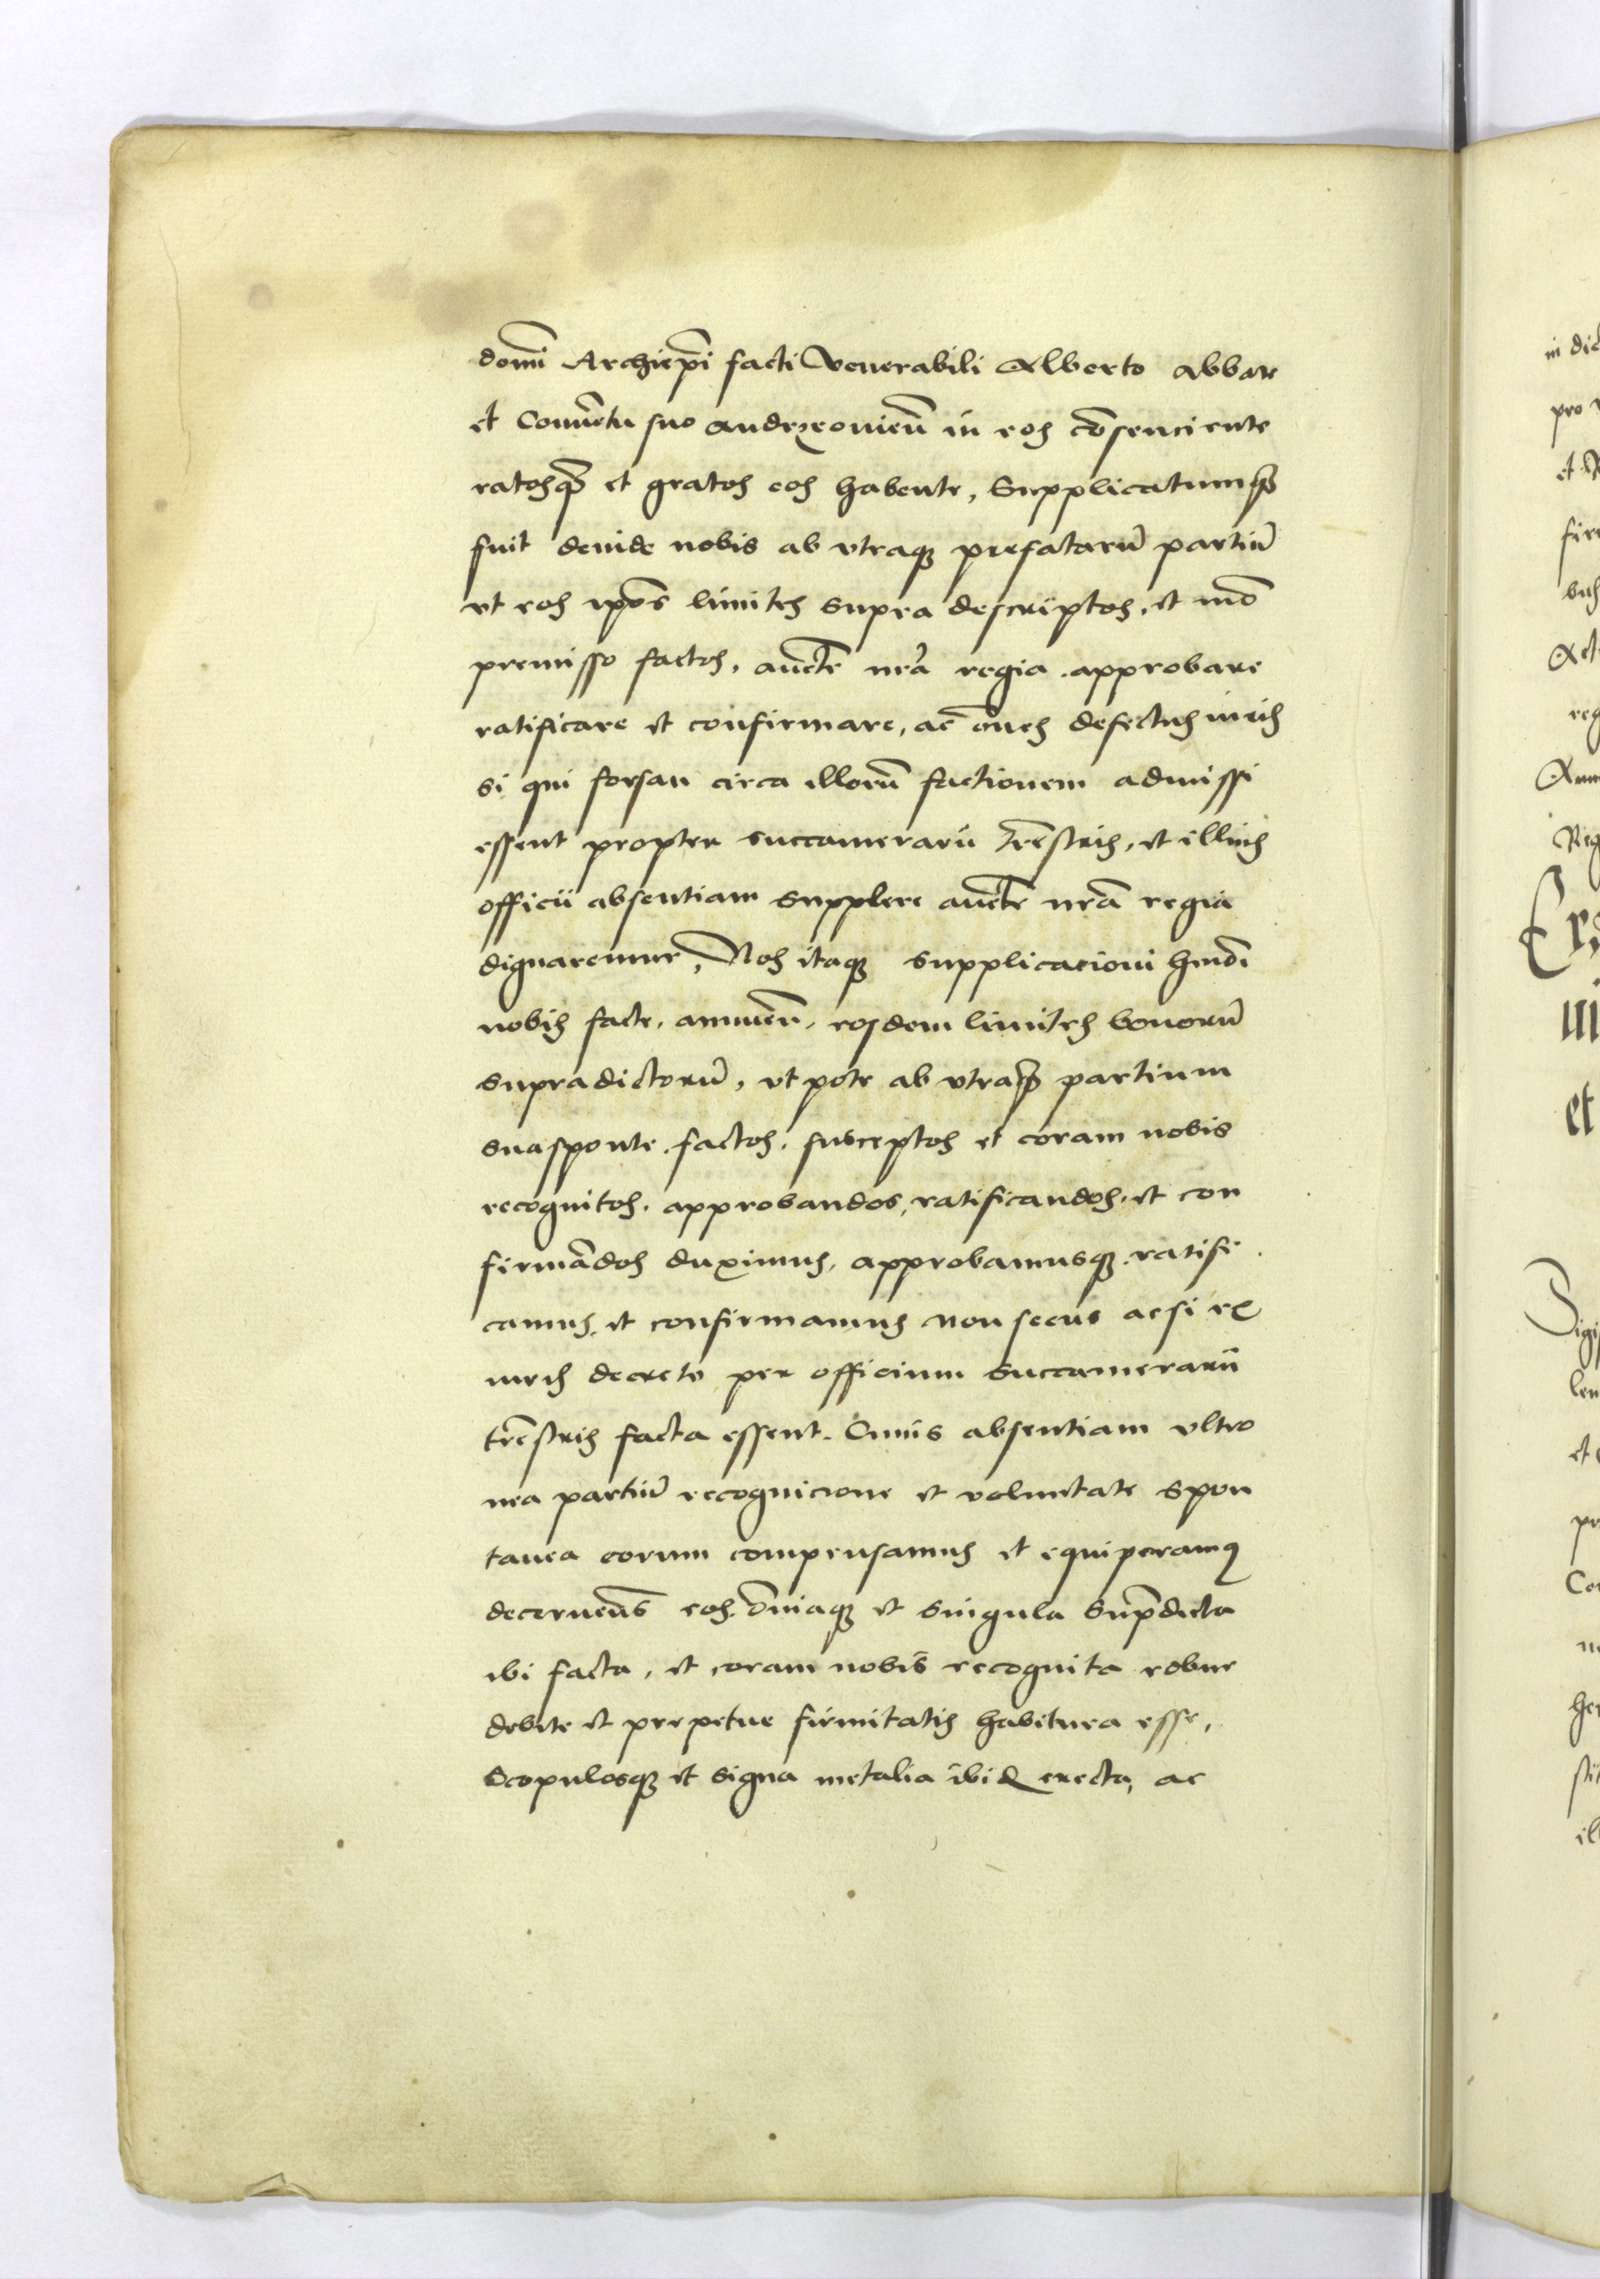 domi Archiepi facti Venerabili Alberto Abbate
et Conuetu suo Andrzeouien in eos consenciente
ratosq et gratos eos habente, Supplicatumq
fuit deinde nobis ab vtraq prefatarū partiū
vt eos ipos limites supra descriptos, et mō
premisso factos, aucte nra regia approbare
ratificare et confirmare, ac ōnes defectus iuris
si qui forsan circa illorū factionem admissi
essent propter succamerarii trestris, et illius
officii absentiam supplere aucte nra regia
dignaremur, Nos itaq supplicacioni hmōi
nobis facte, annuen, eosdem limites bonorū
supradictorū, vt pote ab vtraq partium
sua sponte factos, susceptos et coram nobis
recognitos, approbandos, ratificandos, et con
firmādos duximus, approbamusq ratifi
camus, et confirmamus non secus ac si ex
iuris decreto per officium Succamerarii
trestris facta essent. Cuius absentiam vltro
nea partiū recognicione et voluntate spon
tanea eorum compensamus et equiperamus
decernens eos, ōniaq et singula suprdicta
ibi facta, et coram nobis recognita robur
debite et perpetue firmitatis habitura esse,
Scopulosq et signa metalia ibidē erecta, ac
in dic
pro
et
fir
bus
Act
reg
Ann
Reg
et
Sigi
len
et
pr
Co
her
sti
ill